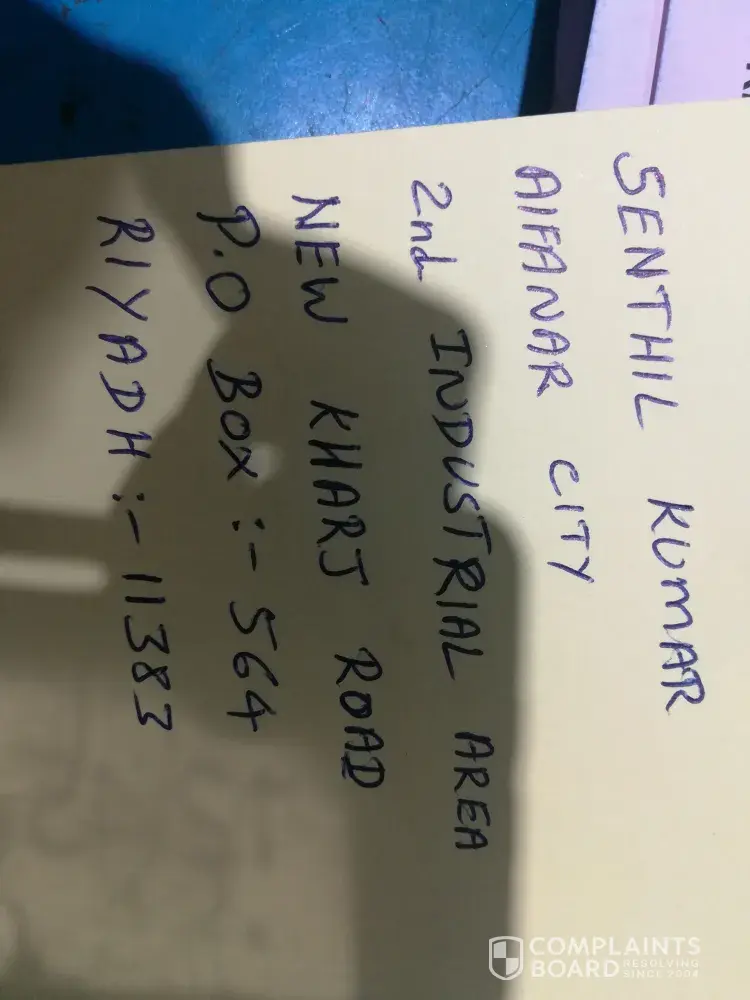 SENTHIL KUMAR
AIFANAR CITY
2nd INDUSTRIAL AREA
NEW KHARJ ROAD
P.O BOX :- 564
RIYADH :- 11383
COMPLAINTS
BOARD RESOLVING
SINCE 2004